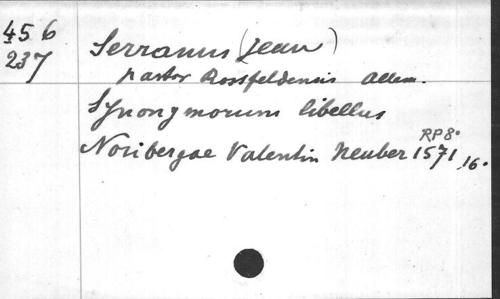 456
237
Serranus (Jean)
pastor Rossfeldensis allem.
Synonymorum libellus
Noribergae Valentin Neuber 1571, 16°
RP 8°